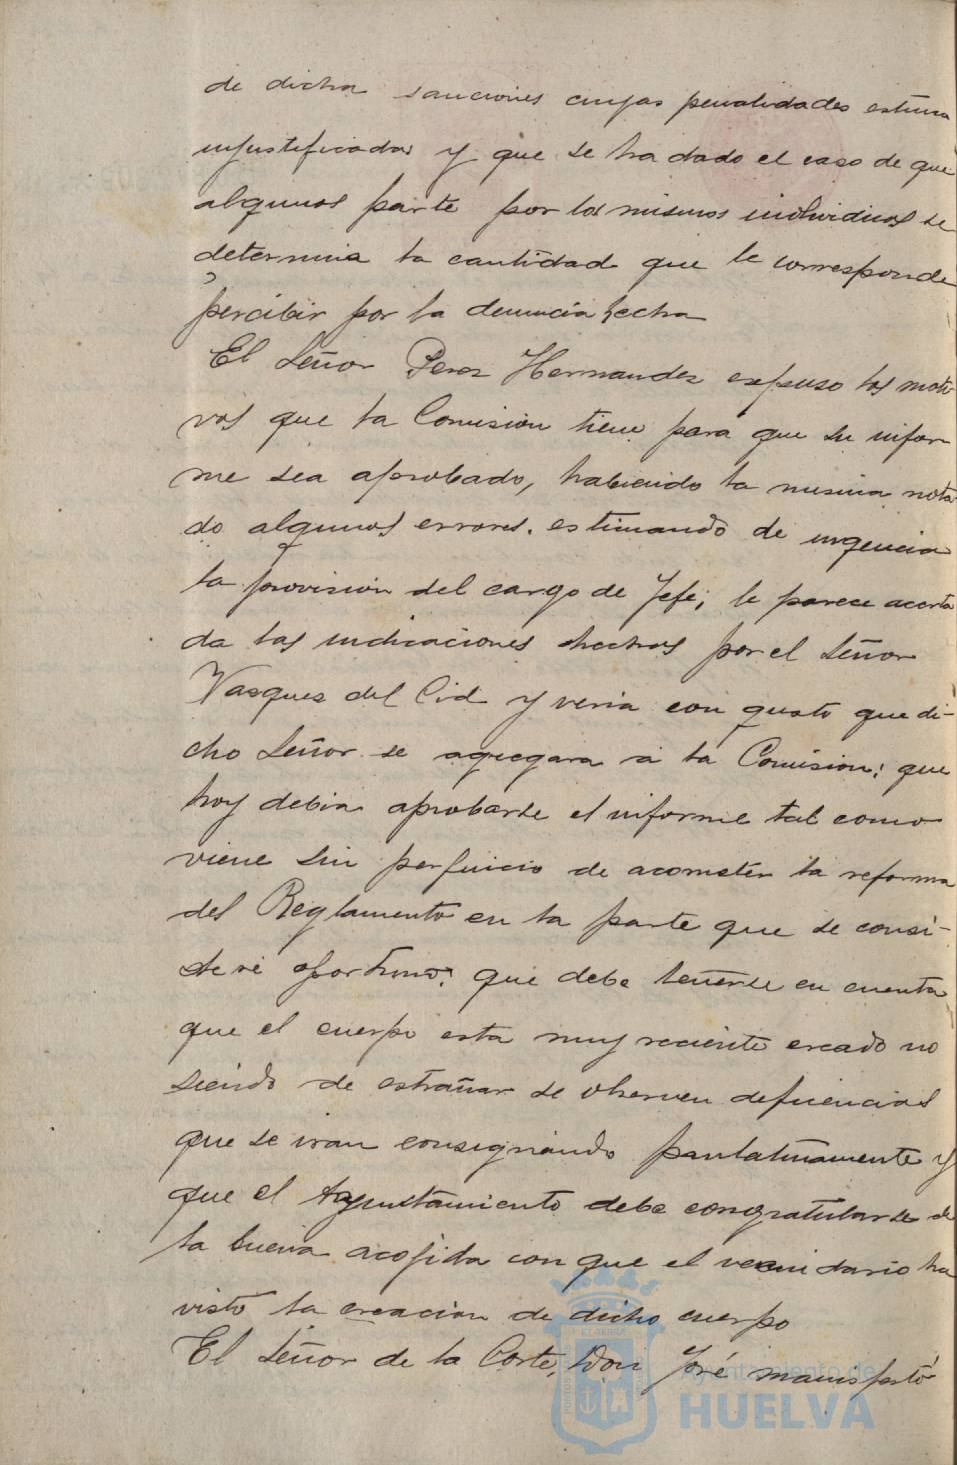 de dicha sanciones cuyas penalidades estima
injustificadas y que se ha dado el caso de que
algunos parte por los mismos individuos se
determina la cantidad que le corresponde
percibir por la denuncia hecha
El Señor Perez Hernandez expuso los moti-
vos que la Comision tiene para que su infor
me sea aprobado, habiendo la misma nota
do algunos errores. estimando de urgencia
la provision del cargo de Jefe; le parece acerta
da las indicaciones hechas por el Señor
Vasquez del Cid y veria con gusto que di-
cho Señor se agregara a la Comision; que
hoy debia aprobarse el informe tal como
viene sin perjuicio de acometer la reforma
del Reglamento en la parte que se consi-
dere oportuno; que debe tenerse en cuenta
que el cuerpo esta muy reciente creado no
siendo de estrañar se observen deficiencias
que se iran consignando paulatinamente y
que el Ayuntamiento debe congratularse de
la buena acojida con que el vecindario ha
visto la creacion de dicho cuerpo
El Señor de la Corte, Don José manifestó
Ayuntamiento de
HUELVA